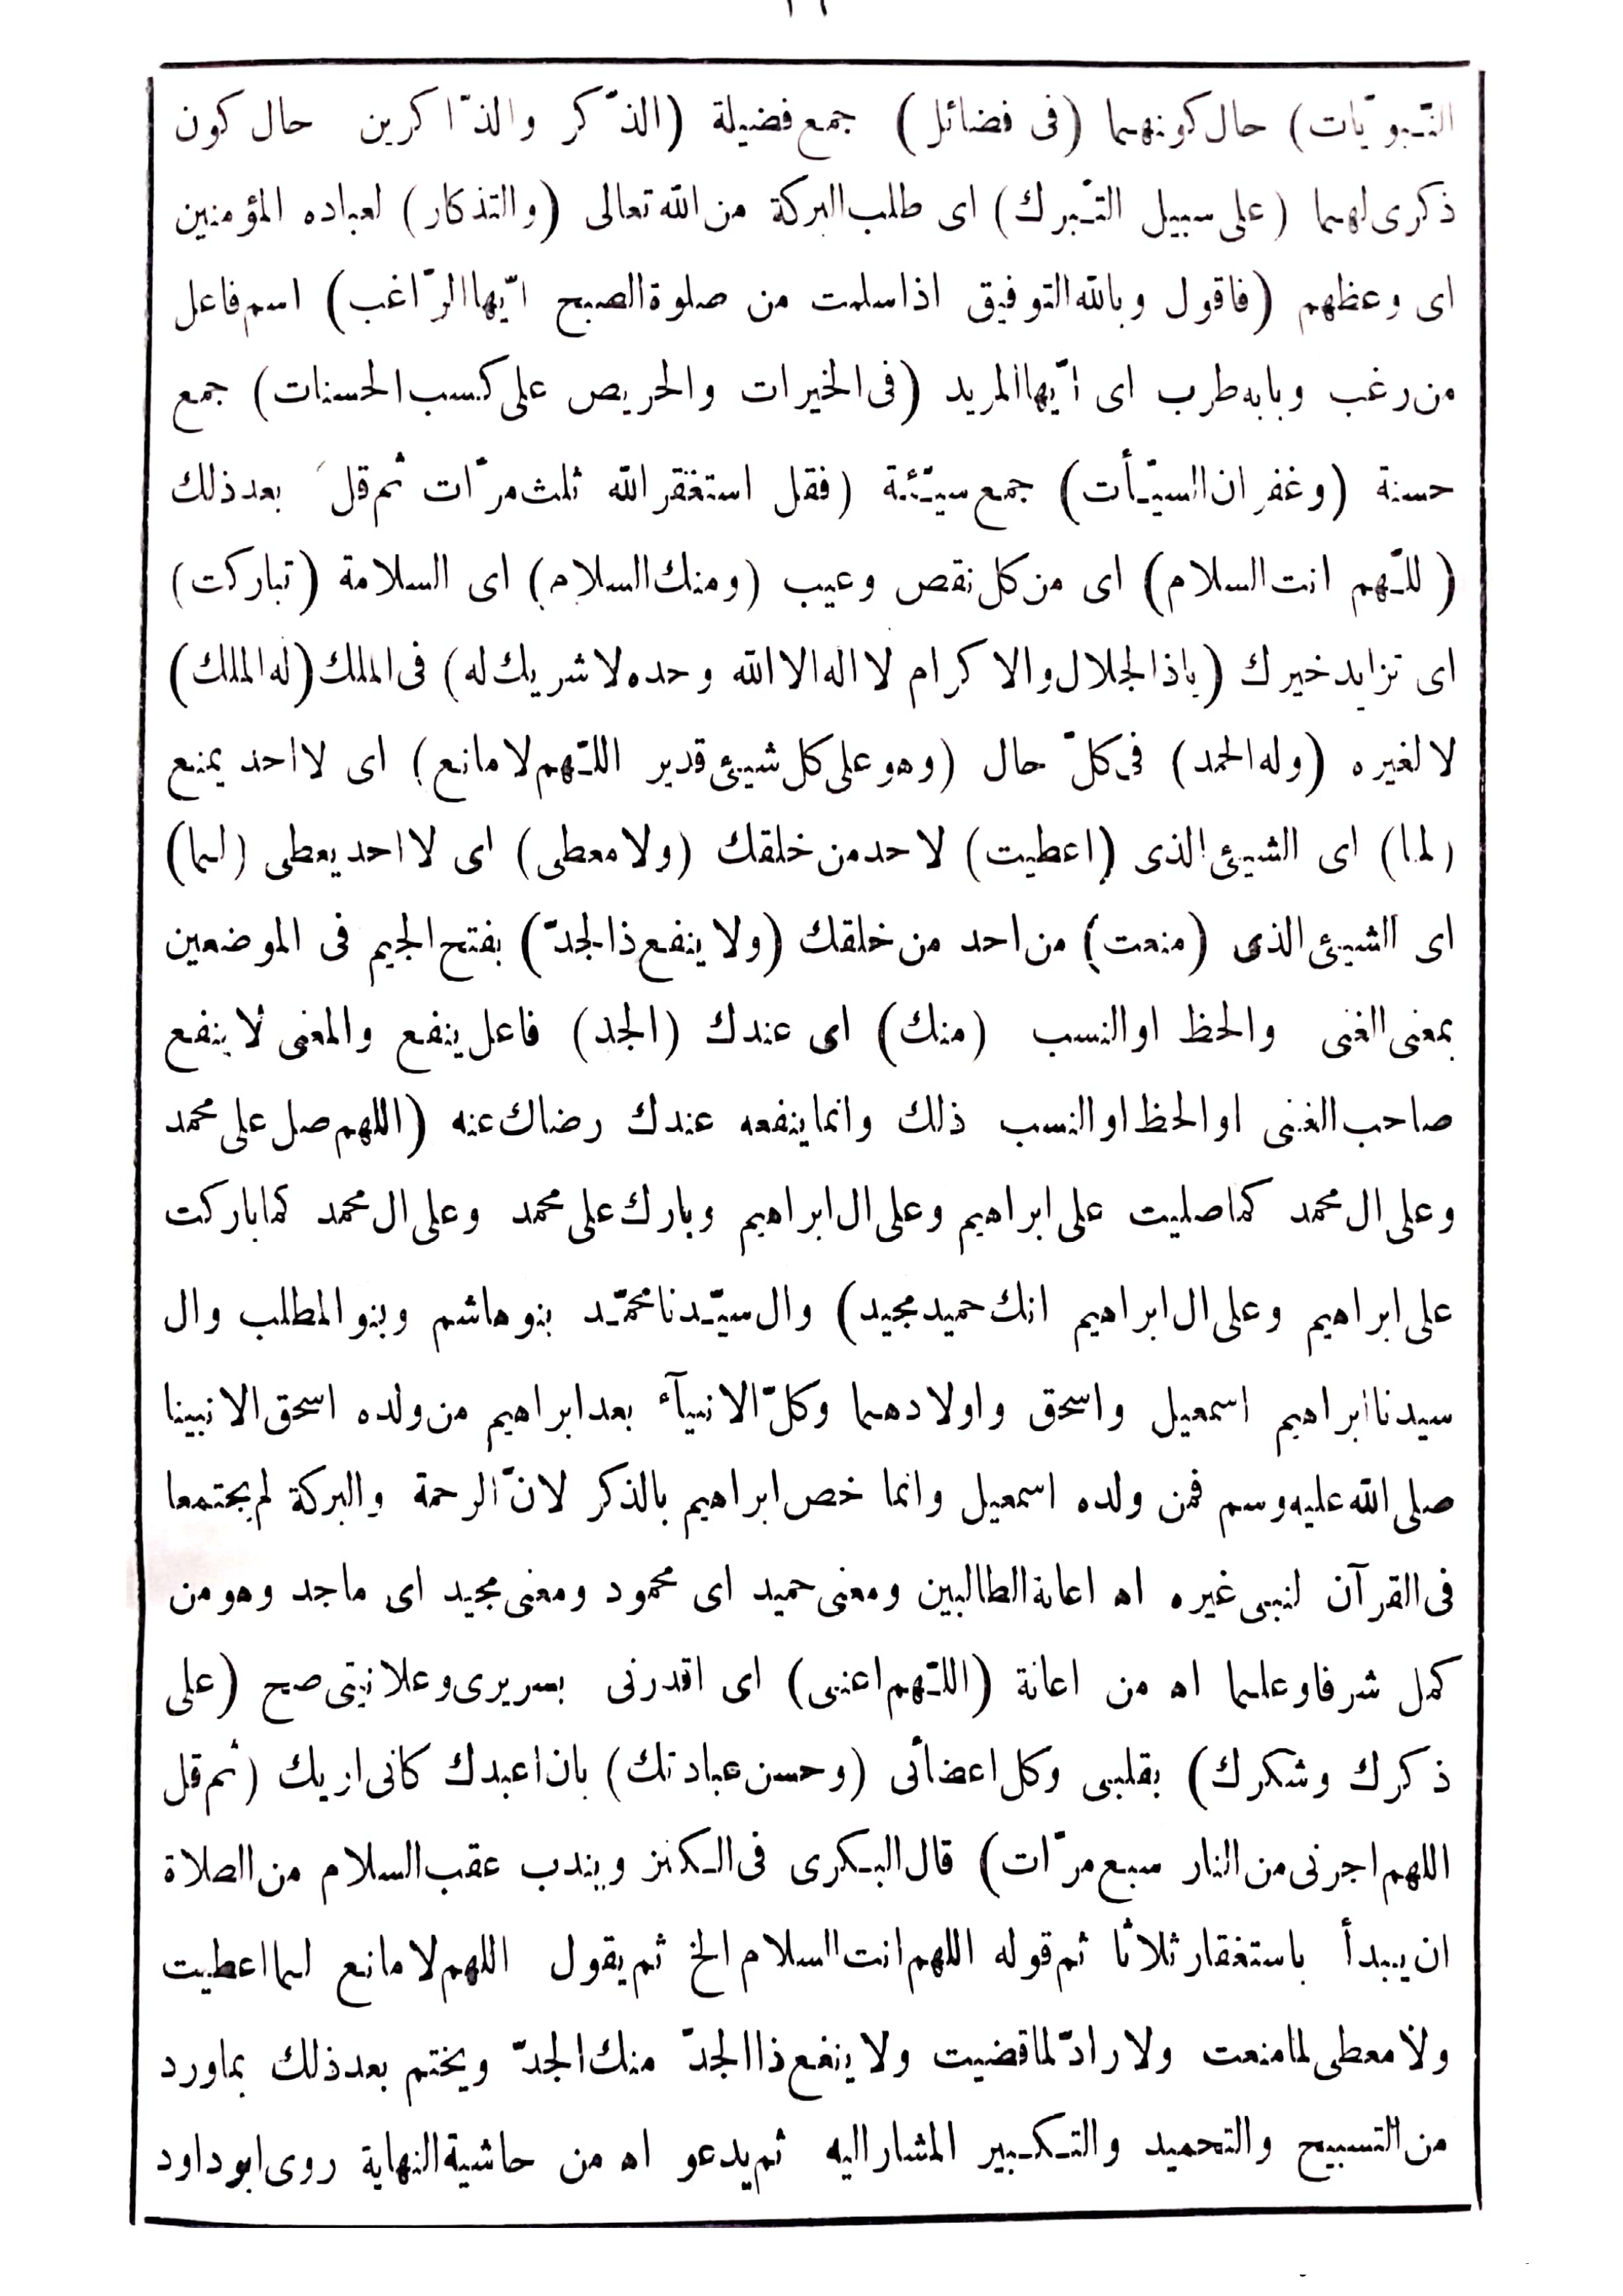 النّبويّات) حال كونهما (فى فضائل) جمع فضيلة (الذّكر والذّاكرين حال كون
ذكرى لهما (على سبيل التّبرك) اى طلب البركة من الله تعالى (والتذكار) لعباده المؤمنين
اى وعظهم (فاقول وبالله التوفيق اذا سلمت من صلوة الصبح ايّها الرّاغب) اسم فاعل
من رغب وبابه طرب اى ايّها المريد (فى الخيرات والحريص على كسب الحسنات) جمع
حسنة (وغفران السيّأت) جمع سيّئة (فقل استغفر الله ثلث مرّات ثم قل بعد ذلك
(للّهم انت السلام) اى من كل نقص وعيب (ومنك السلام) اى السلامة (تباركت)
اى تزايد خيرك (ياذا الجلال والاكرام لا اله الا الله وحده لا شريك له) فى الملك (له الملك)
لا لغيره (وله الحمد) فى كلّ حال (وهو على كل شيئ قدير اللّهم لا مانع) اى لا احد يمنع
(لما) اى الشيئ الذى (اعطيت) لاحد من خلقك (ولا معطى) اى لا احد يعطى (لما)
اى الشيئ الذى (منعت) من احد من خلقك (ولا ينفع ذا لجدّ) بفتح الجيم فى الموضعين
بمعنى الغنى والحظ او النسب (منك) اى عندك (الجد) فاعل ينفع والمعنى لا ينفع
صاحب الغنى او الحظ او النسب ذلك وانما ينفعه عندك رضاك عنه (اللهم صل على محمد
وعلى ال محمد كما صليت على ابراهيم وعلى ال ابراهيم وبارك على محمد وعلى ال محمد كما باركت
على ابراهيم وعلى ال ابراهيم انك حميد مجيد) وال سيّدنا محمّد بنو هاشم وبنو المطلب وال
سيدنا ابراهيم اسمعيل واسحق واولادهما وكلّ الانبيآء بعد ابراهيم من ولده اسحق الا نبينا
صلى الله عليه وسم فمن ولده اسمعيل وانما خص ابراهيم بالذكر لانّ الرحمة والبركة لم يجتمعا
فى القرآن لنبى غيره اه اعانة الطالبين ومعنى حميد اى محمود ومعنى مجيد اى ماجد وهو من
كمل شرفا وعلما اه من اعانة (اللّهم اعنى) اى اقدرنى بسريرى وعلانيتى صح (على
ذكرك وشكرك) بقلبى وكل اعضائى (وحسن عبادتك) بان اعبدك كانى اريك (ثم قل
اللهم اجرنى من النار سبع مرّات) قال البكرى فى الكنز ويندب عقب السلام من الصلاة
ان يبدأ باستغفار ثلاثا ثم قوله اللهم انت السلام الخ ثم يقول اللهم لا مانع لما اعطيت
ولا معطى لما منعت ولا رادّ لما قضيت ولا ينفع ذا الجدّ منك الجدّ ويختم بعد ذلك بما ورد
من التسبيح والتحميد والتكبير المشار اليه ثم يدعو اه من حاشية النهاية روى ابو داود